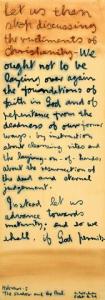 Let us then
stop discussing
the rudiments of
Christianity. We
ought not to be
laying over again
the foundations of
faith in God and of
repentance from the
deadness of our former
ways, by instruction
about cleansing rites and
the laying-on-of-hands,
about the resurrection of
the dead and eternal
judgement.
Instead let us
advance towards
maturity; and so we
shall, if God permits
Hebrews: 6
The shadow and the Real.